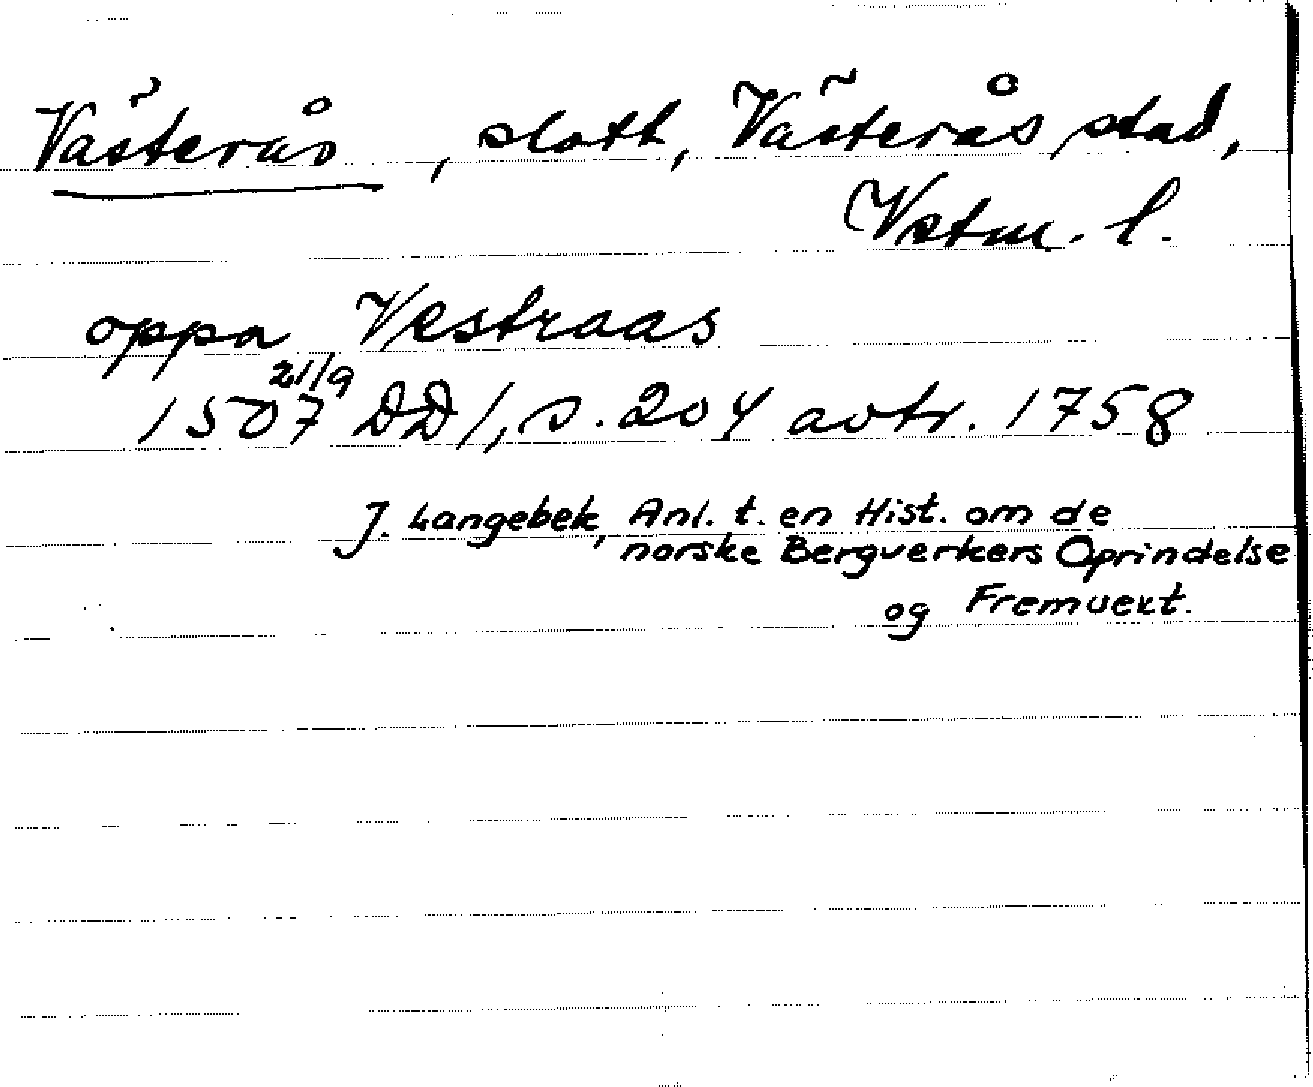 Västerås, slott, Västerås stad,
Vstm. l.
oppa Vestraas
1507 21/9 DD 1, s. 204 avtr. 1758
J. Langebek, Anl. t. en Hist. om de
norske Bergverkers Oprindelse
og Fremvext.